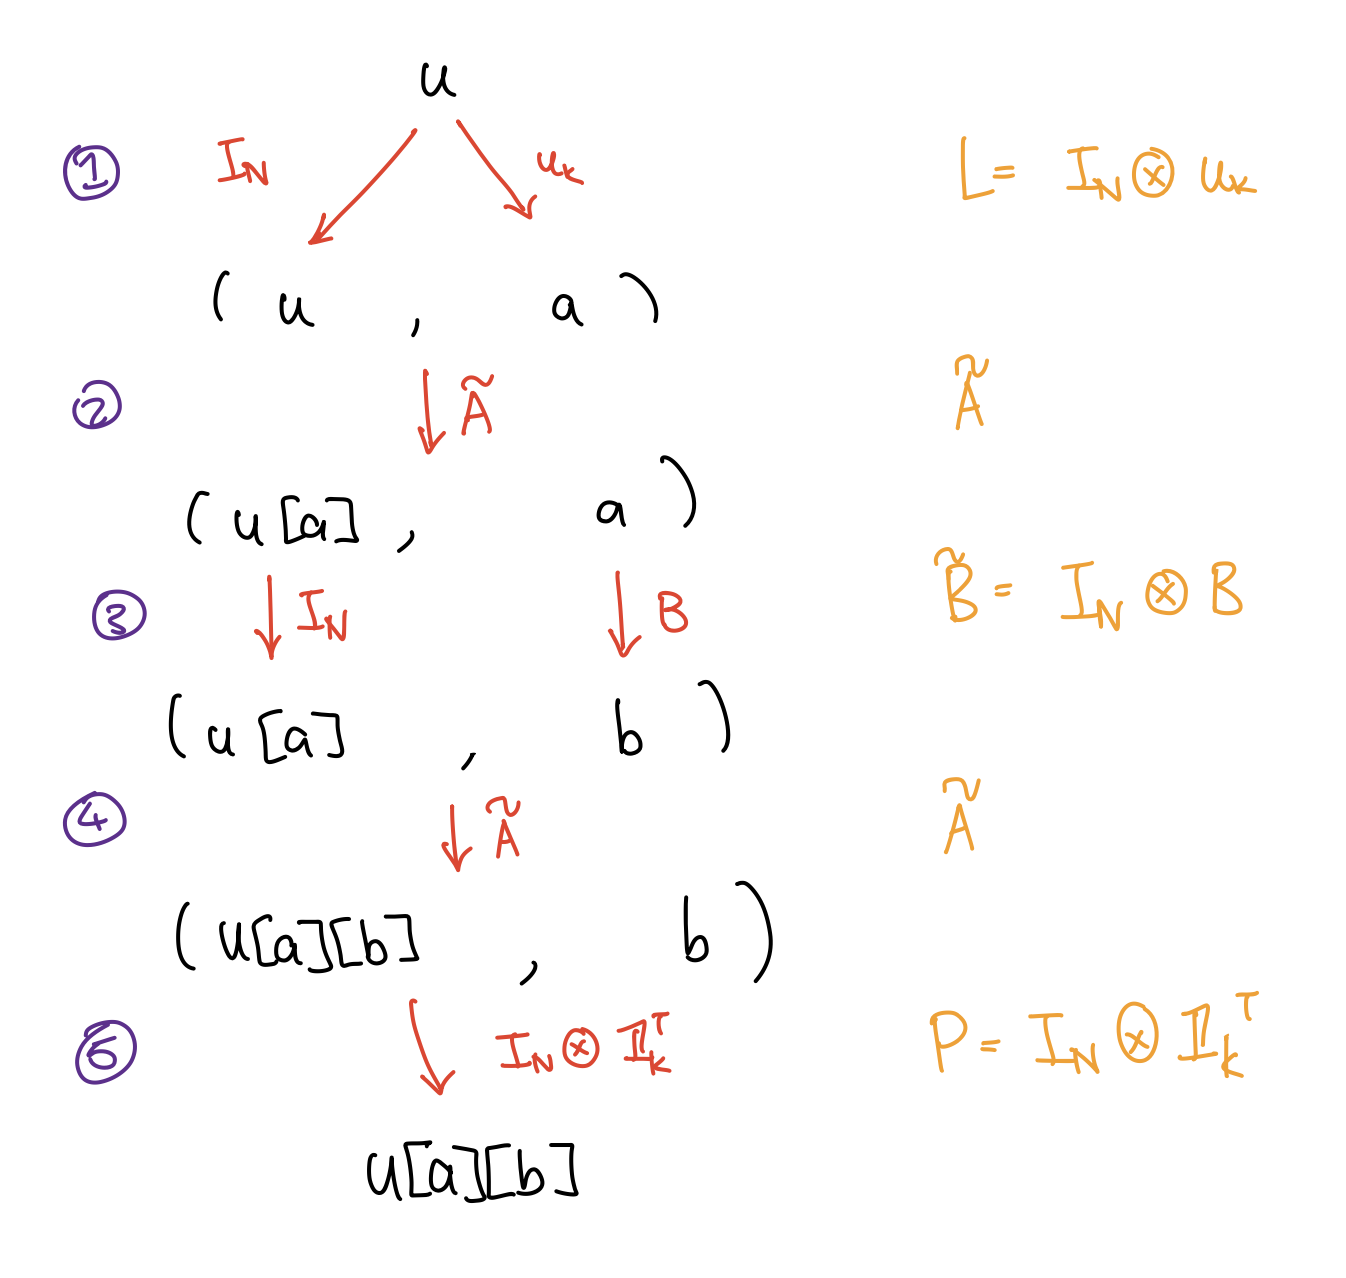 u
① I_N u_k L = I_N ⊗ u_k
( u , a )
② Ã Ã
( u[a] , a )
③ I_N B B̃ = I_N ⊗ B
( u[a] , b )
④ Ã Ã
( u[a][b] , b )
⑤ I_N ⊗ 𝟙_k^T P = I_N ⊗ 𝟙_k^T
u[a][b]